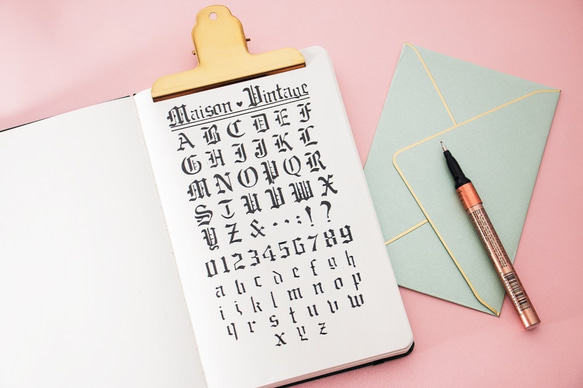 Maison ♥ Vintage
A B C D E F
G H I J K L
M N O P Q R
S T U V W X
Y Z & · · : ! ?
0 1 2 3 4 5 6 7 8 9
a b c d e f g h
i j k l m n o p
q r s t u v w
x y z